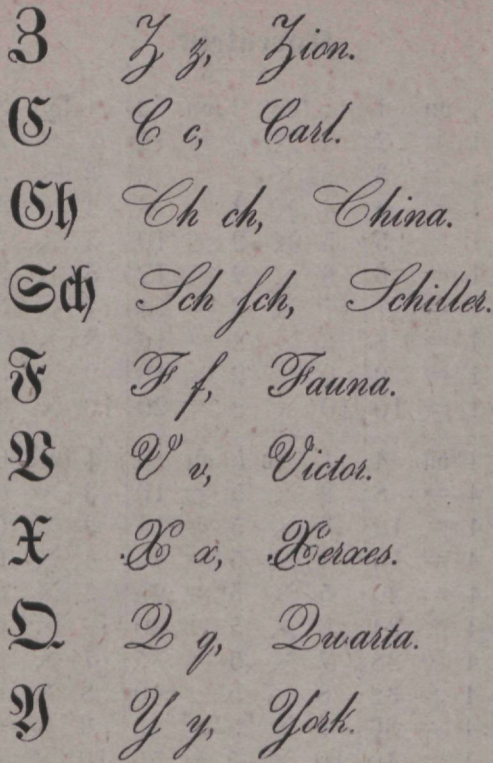 Z Z z, Zion.
C C c, Carl.
Ch Ch ch, China.
Sch Sch ſch, Schiller.
F F f, Fauna.
V V v, Victor.
X X x, Xerxes.
Q Q q, Quarta.
Y Y y, York.